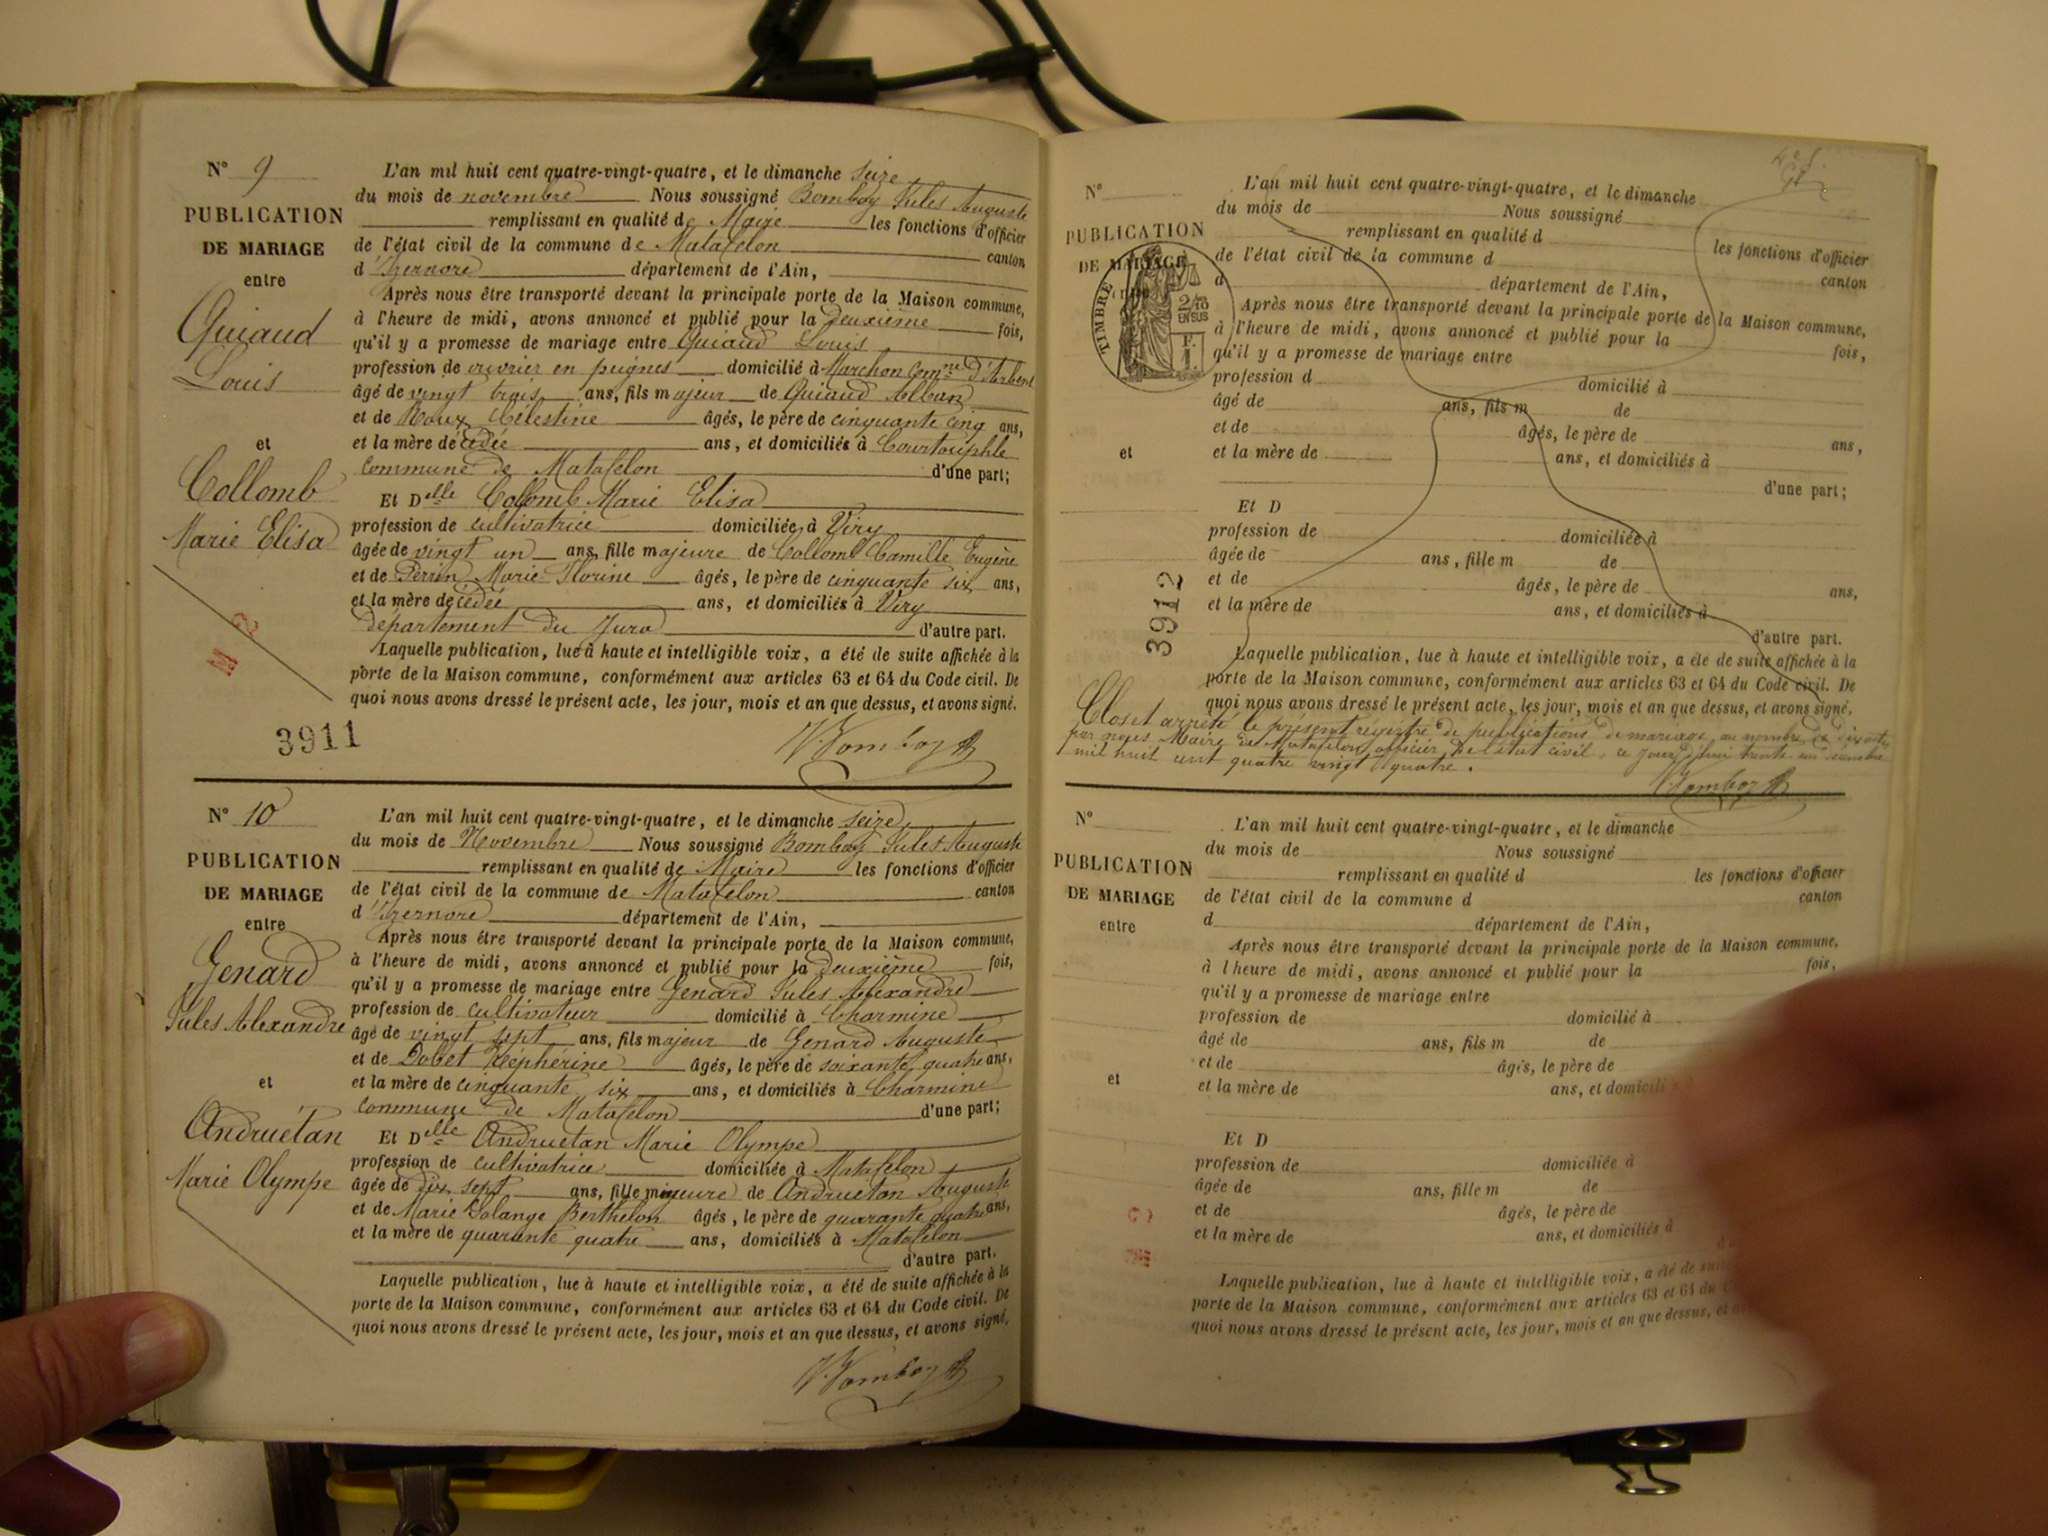 N° 9
PUBLICATION
DE MARIAGE
entre
Quiaud
Louis
et
Collomb
Marie Elisa
M 2
3911
L'an mil huit cent quatre-vingt-quatre, et le dimanche seize
du mois de novembre Nous soussigné Bomboy Jules Auguste
remplissant en qualité de Maire les fonctions d'officier
de l'état civil de la commune de Matafelon canton
d'Izernore département de l'Ain,
Après nous être transporté devant la principale porte de la Maison commune,
à l'heure de midi, avons annoncé et publié pour la deuxième fois,
qu'il y a promesse de mariage entre Quiaud Louis
profession de ouvrier en peignes domicilié à Marchon comne d'Arbent
âgé de vingt trois ans, fils majeur de Quiaud Alban
et de Roux Célestine âgés, le père de cinquante cinq ans,
et la mère décédée ans, et domiciliés à Courtouphle
commune de Matafelon d'une part;
Et Delle Collomb Marie Elisa
profession de cultivatrice domiciliée à Viry
âgée de vingt un ans, fille majeure de Collomb Camille Eugène
et de Perrin Marie Florine âgés, le père de cinquante six ans,
et la mère décédée ans, et domiciliés à Viry
département du Jura d'autre part.
Laquelle publication, lue à haute et intelligible voix, a été de suite affichée à la
porte de la Maison commune, conformément aux articles 63 et 64 du Code civil. De
quoi nous avons dressé le présent acte, les jour, mois et an que dessus, et avons signé.
Bomboy
N° 10
PUBLICATION
DE MARIAGE
entre
Genard
Jules Alexandre
et
Andruétan
Marie Olympe
L'an mil huit cent quatre-vingt-quatre, et le dimanche seize
du mois de Novembre Nous soussigné Bomboy Jules Auguste
remplissant en qualité de Maire les fonctions d'officier
de l'état civil de la commune de Matafelon canton
d'Izernore département de l'Ain,
Après nous être transporté devant la principale porte de la Maison commune,
à l'heure de midi, avons annoncé et publié pour la deuxième fois,
qu'il y a promesse de mariage entre Genard Jules Alexandre
profession de cultivateur domicilié à Charmine
âgé de vingt sept ans, fils majeur de Genard Auguste
et de Dobet Zéphérine âgés, le père de soixante quatre ans,
et la mère de cinquante six ans, et domiciliés à Charmine
commune de Matafelon d'une part;
Et Delle Andruétan Marie Olympe
profession de cultivatrice domiciliée à Matafelon
âgée de dix sept ans, fille mineure de Andruétan Auguste
et de Marie Solange Berthelon âgés, le père de quarante quatre ans,
et la mère de quarante quatre ans, domiciliés à Matafelon
d'autre part.
Laquelle publication, lue à haute et intelligible voix, a été de suite affichée à la
porte de la Maison commune, conformément aux articles 63 et 64 du Code civil. De
quoi nous avons dressé le présent acte, les jour, mois et an que dessus, et avons signé.
Bomboy
N°
PUBLICATION
DE MARIAGE
TIMBRE
2/10
EN SUS
et
3912
L'an mil huit cent quatre-vingt-quatre, et le dimanche
du mois de Nous soussigné
remplissant en qualité d les fonctions d'officier
de l'état civil de la commune d canton
d département de l'Ain,
Après nous être transporté devant la principale porte de la Maison commune,
à l'heure de midi, avons annoncé et publié pour la fois,
qu'il y a promesse de mariage entre
profession d domicilié à
âgé de ans, fils m de
et de âgés, le père de ans,
et la mère de ans, et domiciliés à
d'une part;
Et D
profession de domiciliée à
âgée de ans, fille m de
et de âgés, le père de ans,
et la mère de ans, et domiciliés à
d'autre part.
Laquelle publication, lue à haute et intelligible voix, a été de suite affichée à la
porte de la Maison commune, conformément aux articles 63 et 64 du Code civil. De
quoi nous avons dressé le présent acte, les jour, mois et an que dessus, et avons signé.
Clos et arrêté le présent registre de publications de mariage au nombre de
par nous Maire de Matafelon officier de l'état civil, ce jourd'hui trente un décembre
mil huit cent quatre vingt quatre.
Bomboy
N°
PUBLICATION
DE MARIAGE
entre
et
L'an mil huit cent quatre-vingt-quatre, et le dimanche
du mois de Nous soussigné
remplissant en qualité d les fonctions d'officier
de l'état civil de la commune d canton
d département de l'Ain,
Après nous être transporté devant la principale porte de la Maison commune,
à l'heure de midi, avons annoncé et publié pour la fois,
qu'il y a promesse de mariage entre
profession de domicilié à
âgé de ans, fils m de
et de âgés, le père de
et la mère de ans, et domicili
Et D
profession de domiciliée à
âgée de ans, fille m de
et de âgés, le père de
et la mère de ans, et domiciliés à
Laquelle publication, lue à haute et intelligible voix, a été de sui
porte de la Maison commune, conformément aux articles 63 et 64 du
quoi nous avons dressé le présent acte, les jour, mois et an que dessus, et